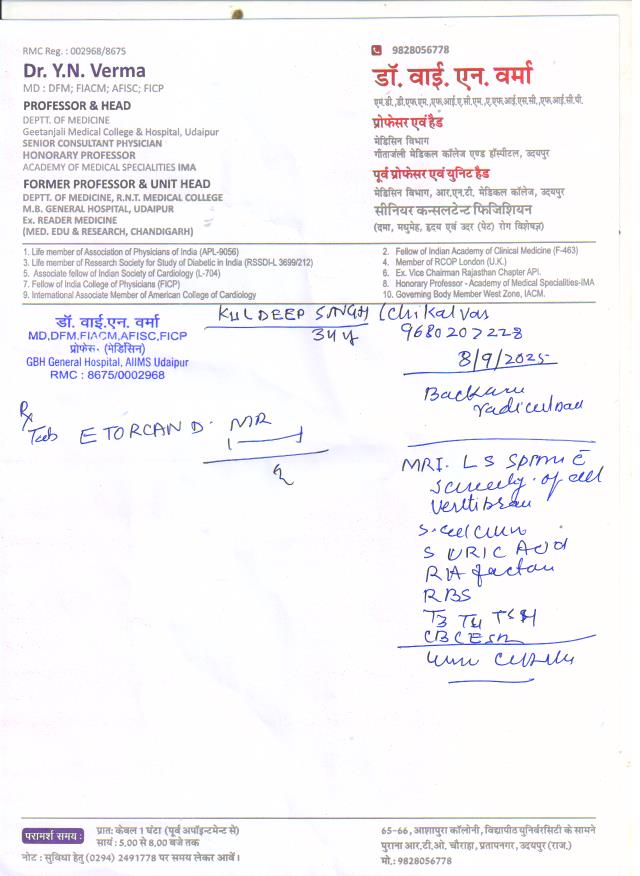 RMC Reg. : 002968/8675
Dr. Y.N. Verma
MD : DFM; FIACM; AFISC; FICP
PROFESSOR & HEAD
DEPTT. OF MEDICINE
Geetanjali Medical College & Hospital, Udaipur
SENIOR CONSULTANT PHYSICIAN
HONORARY PROFESSOR
ACADEMY OF MEDICAL SPECIALITIES IMA
FORMER PROFESSOR & UNIT HEAD
DEPTT. OF MEDICINE, R.N.T. MEDICAL COLLEGE
M.B. GENERAL HOSPITAL, UDAIPUR
Ex. READER MEDICINE
(MED. EDU & RESEARCH, CHANDIGARH)
9828056778
डॉ. वाई. एन. वर्मा
एम.डी.,डी.एफ.एम.,एफ.आई.ए.सी.एम.,ए.एफ.आई.एस.सी.,एफ.आई.सी.पी.
प्रोफेसर एवं हैड
मेडिसिन विभाग
गीतांजली मेडिकल कॉलेज एण्ड हॉस्पीटल, उदयपुर
पूर्व प्रोफेसर एवं युनिट हैड
मेडिसिन विभाग, आर.एन.टी. मेडिकल कॉलेज, उदयपुर
सीनियर कन्सलटेन्ट फिजिशियन
(दमा, मधुमेह, हृदय एवं उदर (पेट) रोग विशेषज्ञ)
1. Life member of Association of Physicians of India (APL-9056)
3. Life member of Research Society for Study of Diabetic in India (RSSDI-L 3699/212)
5. Associate fellow of Indian Society of Cardiology (L-704)
7. Fellow of India College of Physicians (FICP)
9. International Associate Member of American College of Cardiology
2. Fellow of Indian Academy of Clinical Medicine (F-463)
4. Member of RCOP London (U.K.)
6. Ex. Vice Chairman Rajasthan Chapter API.
8. Honorary Professor - Academy of Medical Specialities-IMA
10. Governing Body Member West Zone, IACM.
डॉ. वाई.एन. वर्मा
MD,DFM,FIACM,AFISC,FICP
प्रोफेसर (मेडिसिन)
GBH General Hospital, AIIMS Udaipur
RMC : 8675/0002968
KULDEEP SINGH / Chikalvas
34 y 9680207228
8/9/2025
Rx
Tab ETORCAN D. MR
MRI. L S SPINE
screening of all
S URIC ACID
RA factor
RBS
T3 T4 TSH
CBC ESR
परामर्श समय :
प्रात: केवल 1 घंटा (पूर्व अपॉइन्टमेन्ट से)
सायं : 5.00 से 8.00 बजे तक
नोट : सुविधा हेतु (0294) 2491778 पर समय लेकर आवें ।
65-66, आशापुरा कॉलोनी, विद्यापीठ युनिर्वरसिटी के सामने
पुराना आर.टी.ओ. चौराहा, प्रतापनगर, उदयपुर (राज.)
मो.: 9828056778